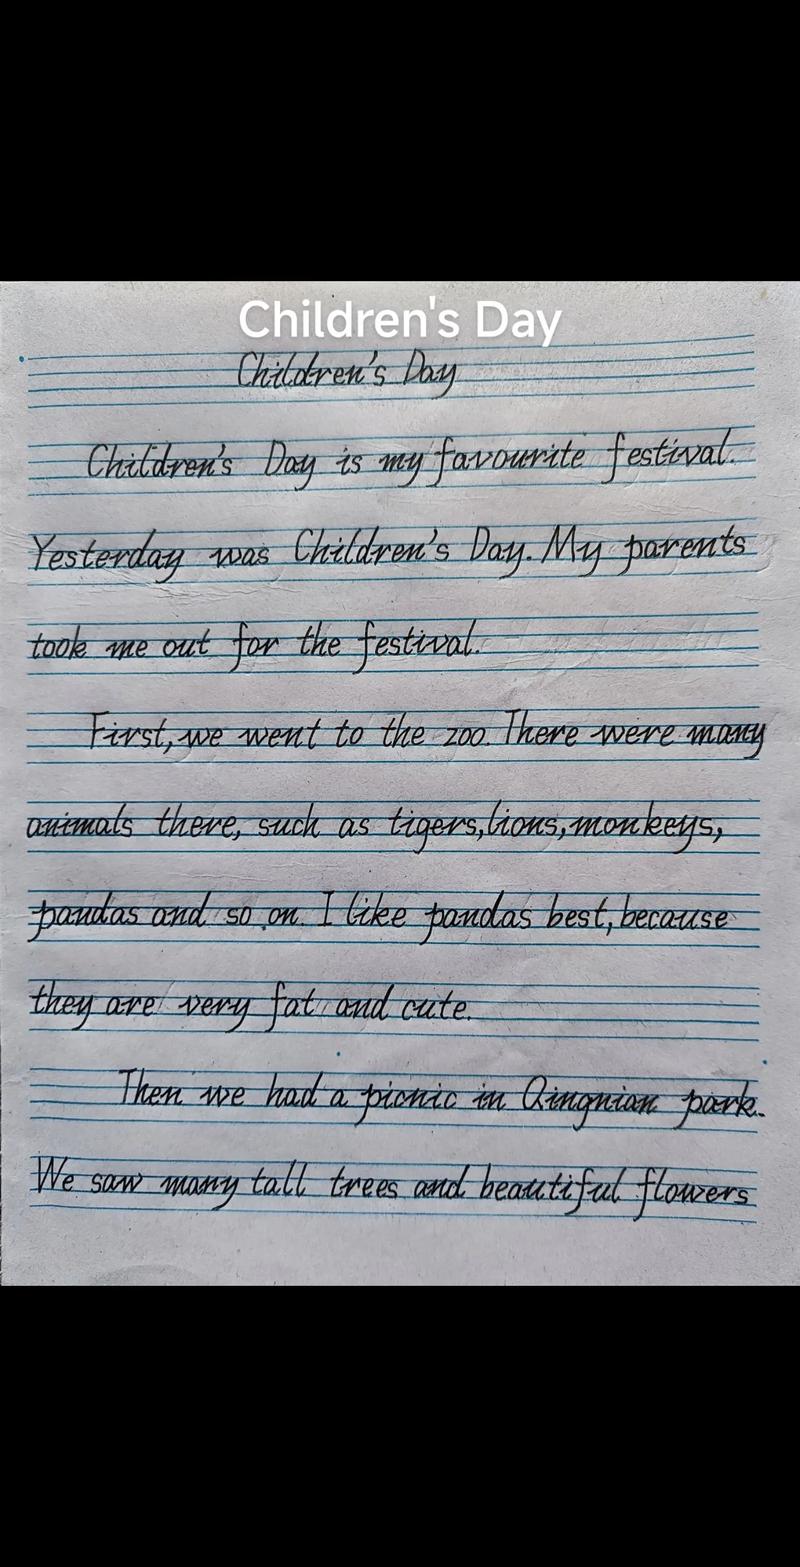 Children's Day
Children's Day
Children's Day is my favourite festival.
Yesterday was Children's Day. My parents
took me out for the festival.
First, we went to the zoo. There were many
animals there, such as tigers, lions, monkeys,
pandas and so on. I like pandas best, because
they are very fat and cute.
Then we had a picnic in Qingnian park.
We saw many tall trees and beautiful flowers